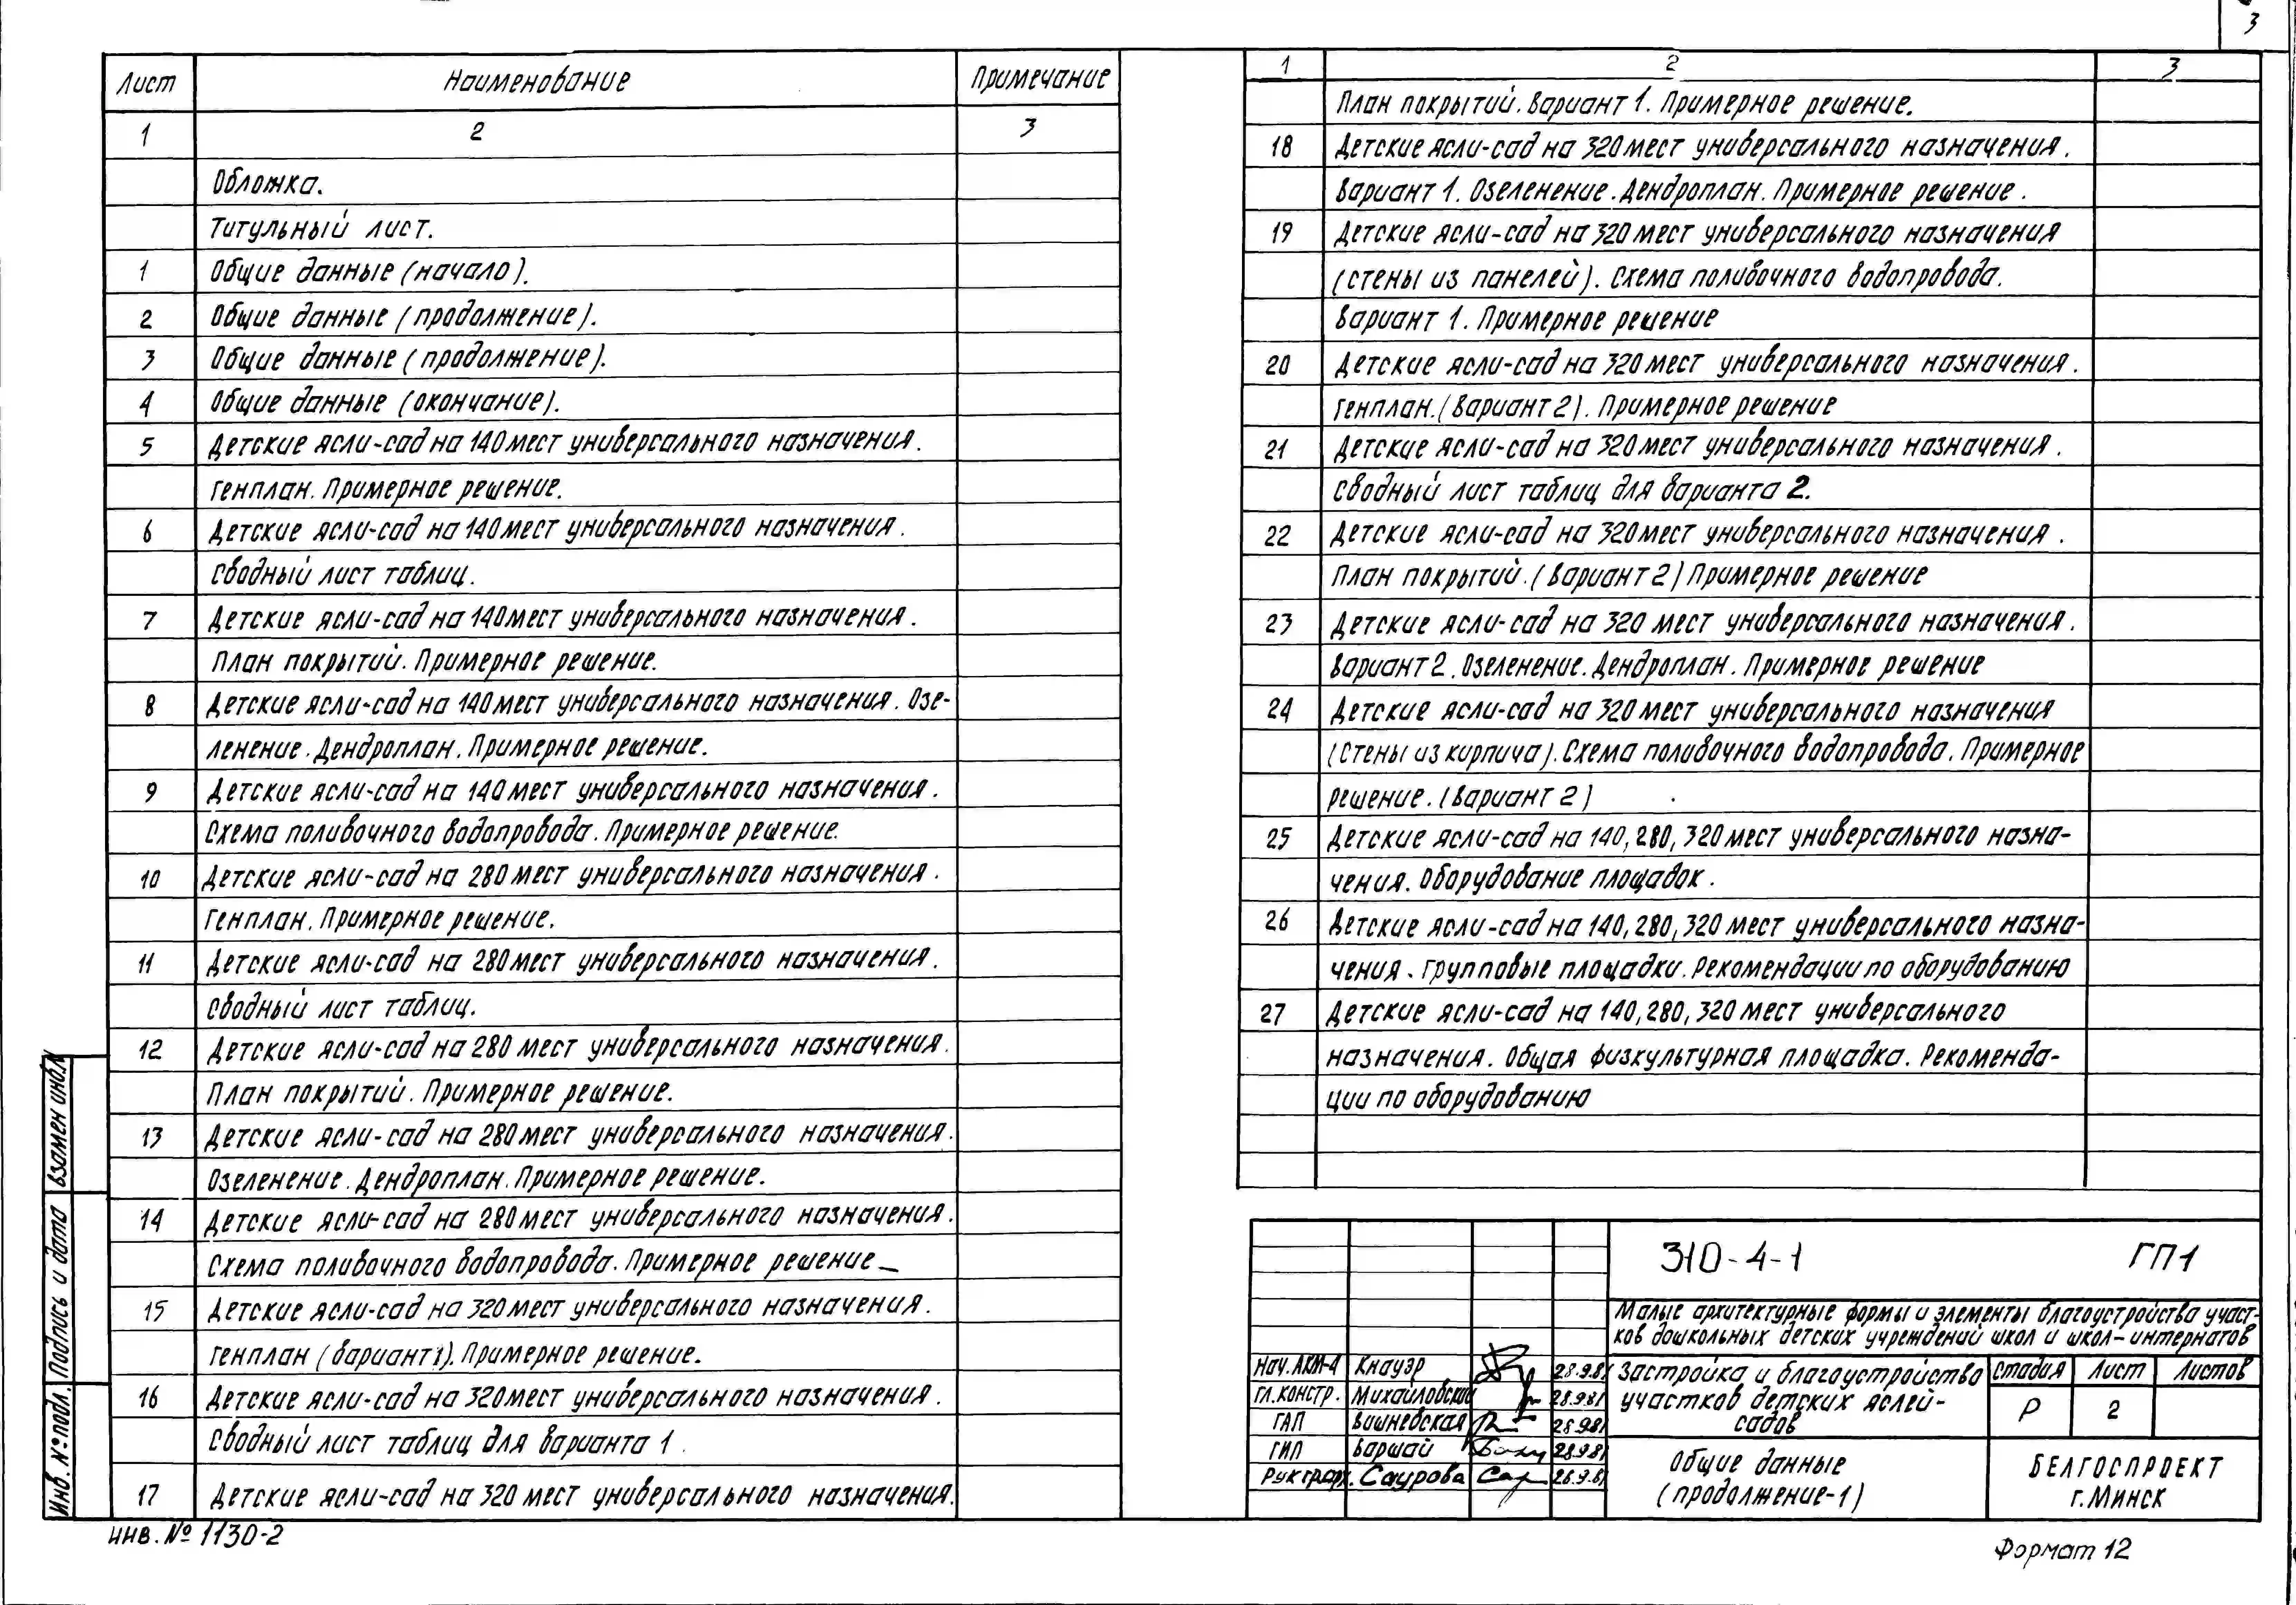 3
Лист Наименование Примечание
1 2 3
Обложка.
Титульный лист.
1 Общие данные (начало).
2 Общие данные (продолжение).
3 Общие данные (продолжение).
4 Общие данные (окончание).
5 Детские ясли-сад на 140 мест универсального назначения.
Генплан. Примерное решение.
6 Детские ясли-сад на 140 мест универсального назначения.
Сводный лист таблиц.
7 Детские ясли-сад на 140 мест универсального назначения.
План покрытий. Примерное решение.
8 Детские ясли-сад на 140 мест универсального назначения. Озе-
ленение. Дендроплан. Примерное решение.
9 Детские ясли-сад на 140 мест универсального назначения.
Схема поливочного водопровода. Примерное решение.
10 Детские ясли-сад на 280 мест универсального назначения.
Генплан. Примерное решение.
11 Детские ясли-сад на 280 мест универсального назначения.
Сводный лист таблиц.
12 Детские ясли-сад на 280 мест универсального назначения.
План покрытий. Примерное решение.
13 Детские ясли-сад на 280 мест универсального назначения.
Озеленение. Дендроплан. Примерное решение.
14 Детские ясли-сад на 280 мест универсального назначения.
Схема поливочного водопровода. Примерное решение
15 Детские ясли-сад на 320 мест универсального назначения.
Генплан (вариант 1). Примерное решение.
16 Детские ясли-сад на 320 мест универсального назначения.
Сводный лист таблиц для варианта 1.
17 Детские ясли-сад на 320 мест универсального назначения.
1 2 3
План покрытий. Вариант 1. Примерное решение.
18 Детские ясли-сад на 320 мест универсального назначения.
Вариант 1. Озеленение. Дендроплан. Примерное решение.
19 Детские ясли-сад на 320 мест универсального назначения
(стены из панелей). Схема поливочного водопровода.
Вариант 1. Примерное решение
20 Детские ясли-сад на 320 мест универсального назначения.
Генплан. (Вариант 2). Примерное решение
21 Детские ясли-сад на 320 мест универсального назначения.
Сводный лист таблиц для варианта 2.
22 Детские ясли-сад на 320 мест универсального назначения.
План покрытий. (Вариант 2) Примерное решение
23 Детские ясли-сад на 320 мест универсального назначения.
Вариант 2. Озеленение. Дендроплан. Примерное решение
24 Детские ясли-сад на 320 мест универсального назначения
(Стены из кирпича). Схема поливочного водопровода. Примерное
решение. (Вариант 2)
25 Детские ясли-сад на 140, 280, 320 мест универсального назна-
чения. Оборудование площадок.
26 Детские ясли-сад на 140, 280, 320 мест универсального назна-
чения. Групповые площадки. Рекомендации по оборудованию
27 Детские ясли-сад на 140, 280, 320 мест универсального
назначения. Общая физкультурная площадка. Рекоменда-
ции по оборудованию
310-4-1 ГП1
Малые архитектурные формы и элементы благоустройства участ-
ков дошкольных детских учреждений школ и школ-интернатов
Нач. АКМ-4 Кнауэр 28.9.81
Гл. констр. Михайловский 28.9.81
ГАП Вишневская 28.9.81
ГИП Варшай 28.9.81
Рук гр.арх. Саурова 28.9.81
Застройка и благоустройство
участков детских яслей-
садов
Стадия Лист Листов
Р 2
Общие данные
(продолжение-1)
БЕЛГОСПРОЕКТ
г. Минск
Взамен инв.№
Подпись и дата
Инв. № подл.
инв. № 1130-2
Формат 12